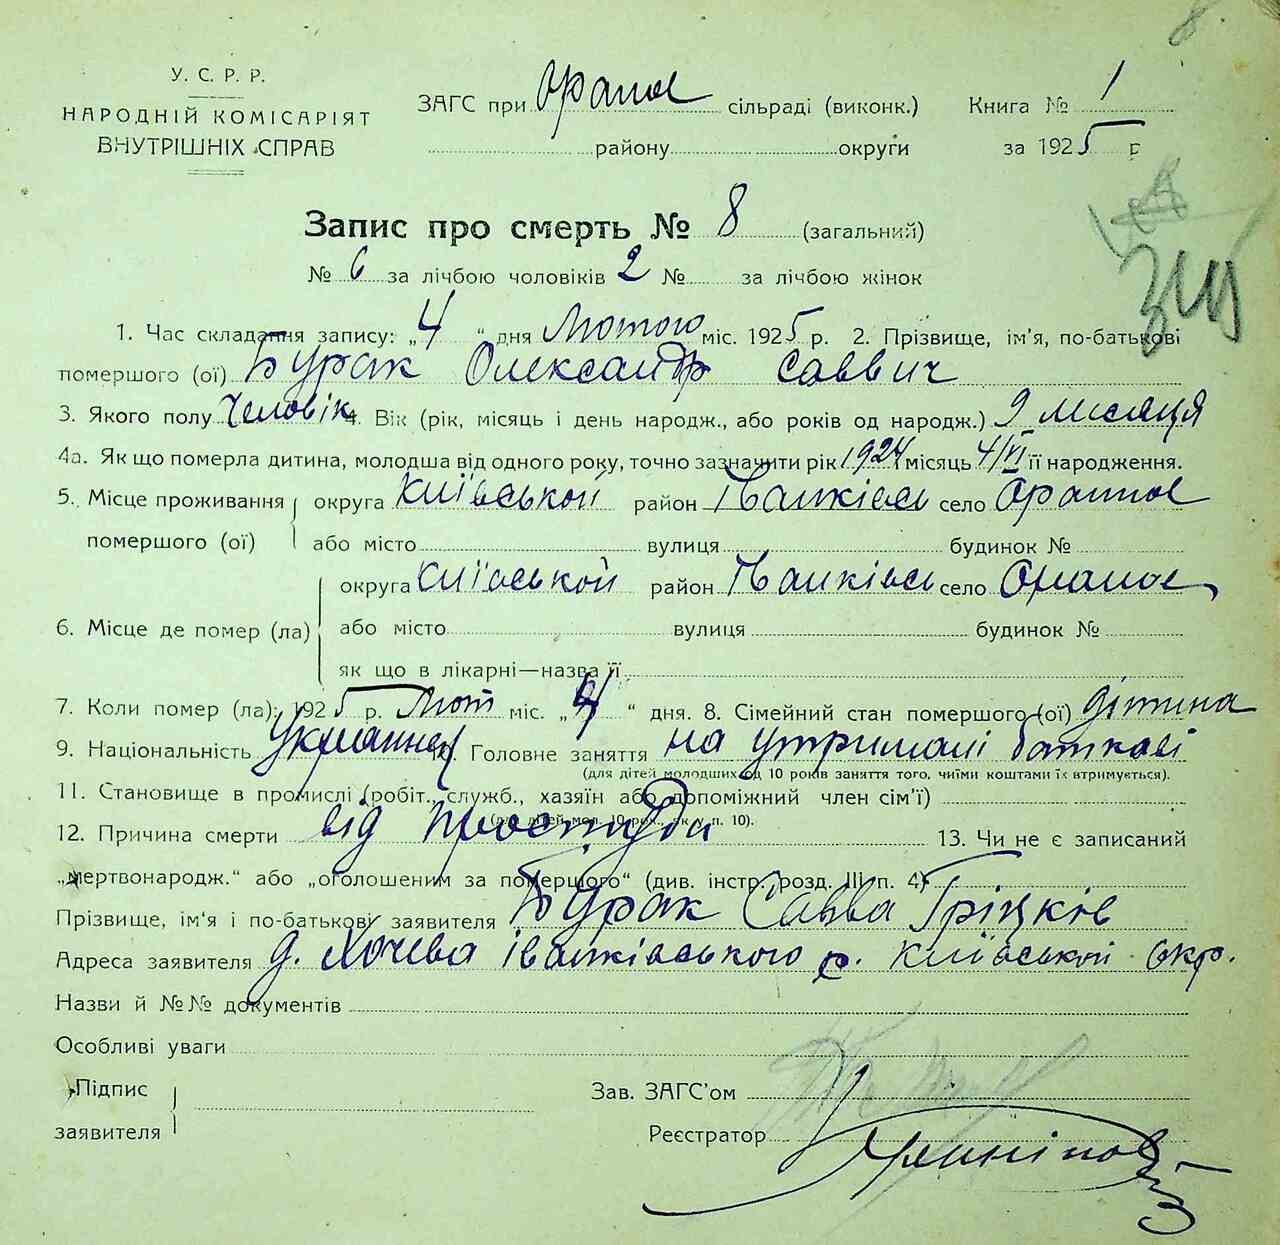 8
У. С. Р. Р.
НАРОДНІЙ КОМІСАРІЯТ
ВНУТРІШНІХ СПРАВ
ЗАГС при Орапое сільраді (виконк.)
району округи
Книга № 1
за 1925 р
Запис про смерть № 8 (загальний)
№ 6 за лічбою чоловіків 2 № за лічбою жінок
1. Час складання запису: „4“ дня Лютого міс. 1925 р. 2. Прізвище, ім'я, по-батькові
помершого (ої) Бурак Олександр Саввич
3. Якого полу Человік 4. Вік (рік, місяць і день народж., або років од народж.) 9 мисяця
4а. Як що померла дитина, молодша від одного року, точно зазначити рік 1924 місяць 4/VI її народження.
5. Місце проживання округа Київськой район Іванківсь село Орапое
помершого (ої) або місто вулиця будинок №
округа Київськой район Іванківсь село Орапое
6. Місце де помер (ла) або місто вулиця будинок №
як що в лікарні—назва її
7. Коли помер (ла): 1925 р. Лют міс. „4“ дня. 8. Сімейний стан помершого (ої) дітина
9. Національність 10. Головне заняття на утримані батькові
(для дітей молодших од 10 років заняття того, чиїми коштами їх втримується).
11. Становище в промислі (робіт., служб., хазяїн або допоміжний член сім'ї)
(для дітей мол. 10 рок., як у п. 10).
12. Причина смерти від простуда 13. Чи не є записаний
„мертвонародж.“ або „оголошеним за помершого“ (див. інстр. розд. III п. 4)
Прізвище, ім'я і по-батькові заявителя Бурак Савва Гріцків
Адреса заявителя д. Хочева Іванківського р. Київськой окр.
Назви й №№ документів
Особливі уваги
Підпис
заявителя
Зав. ЗАГС'ом
Реєстратор